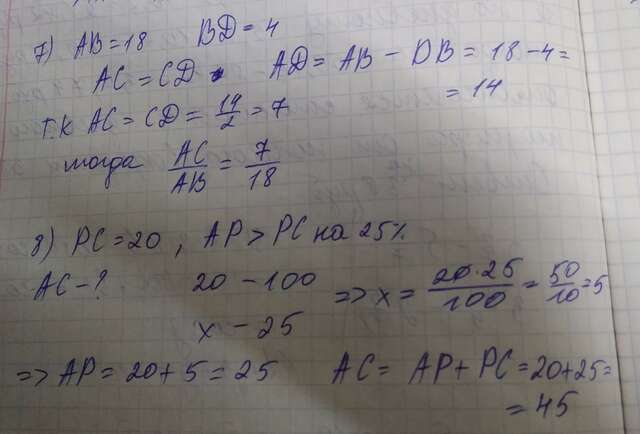 7) AB=18 BD=4
AC=CD AD=AB-DB=18-4=
=14
т.к AC=CD=14/2=7
тогда AC/AB=7/18
8) PC=20, AP>PC на 25%
AC-? 20-100
x-25
=>x=20·25/100=50/10=5
=>AP=20+5=25 AC=AP+PC=20+25=
=45